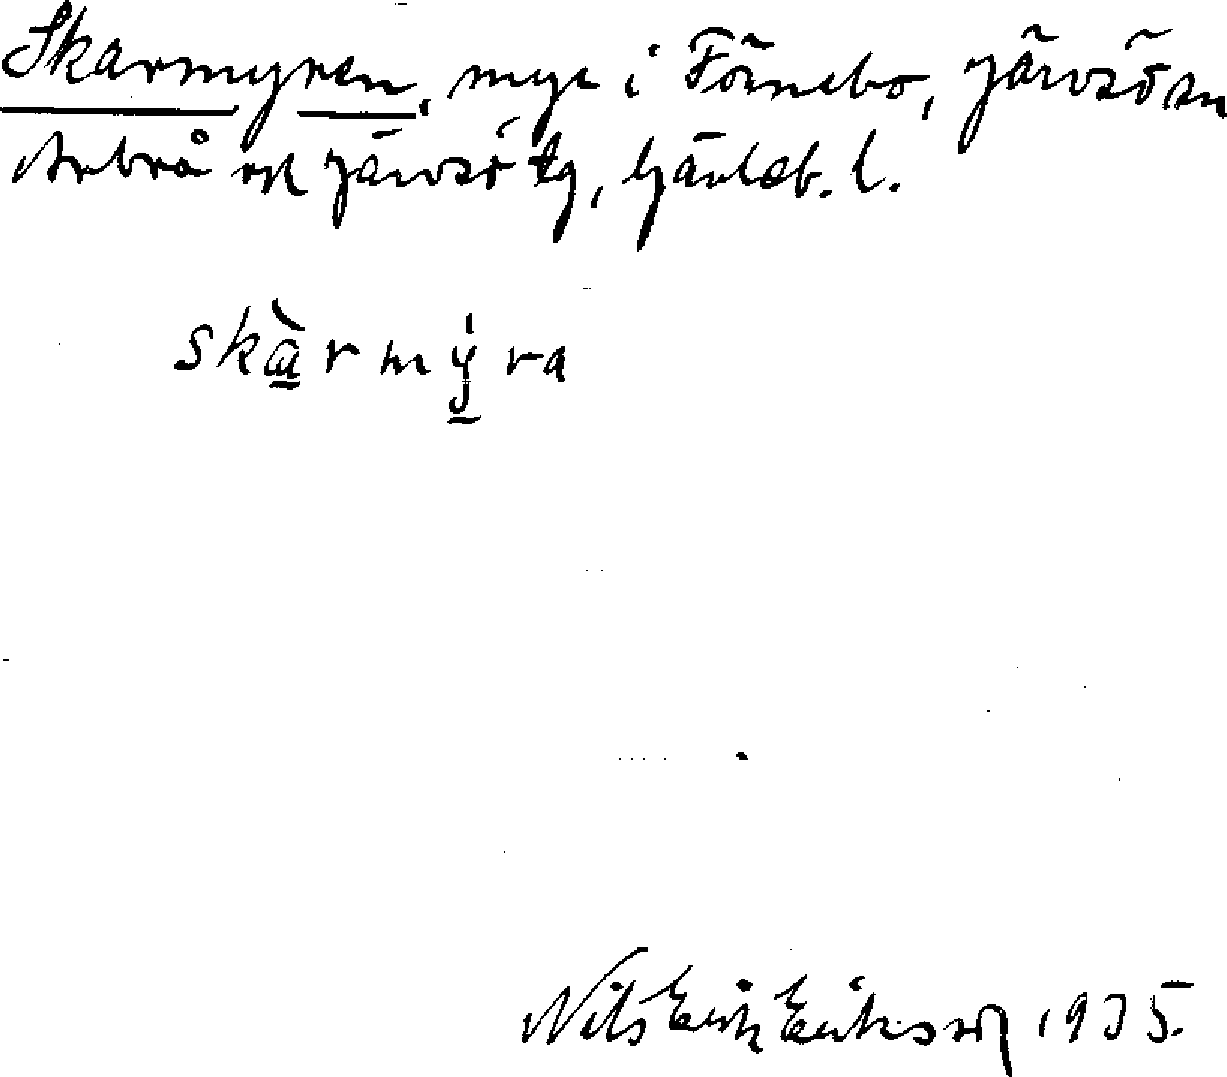 Skarmyren, myr i Förnebo, Järvsö sn
Arbrå och Järvsö tg, Gävleb. l.
skàrmýra
Nils Erik Eriksson 1935.